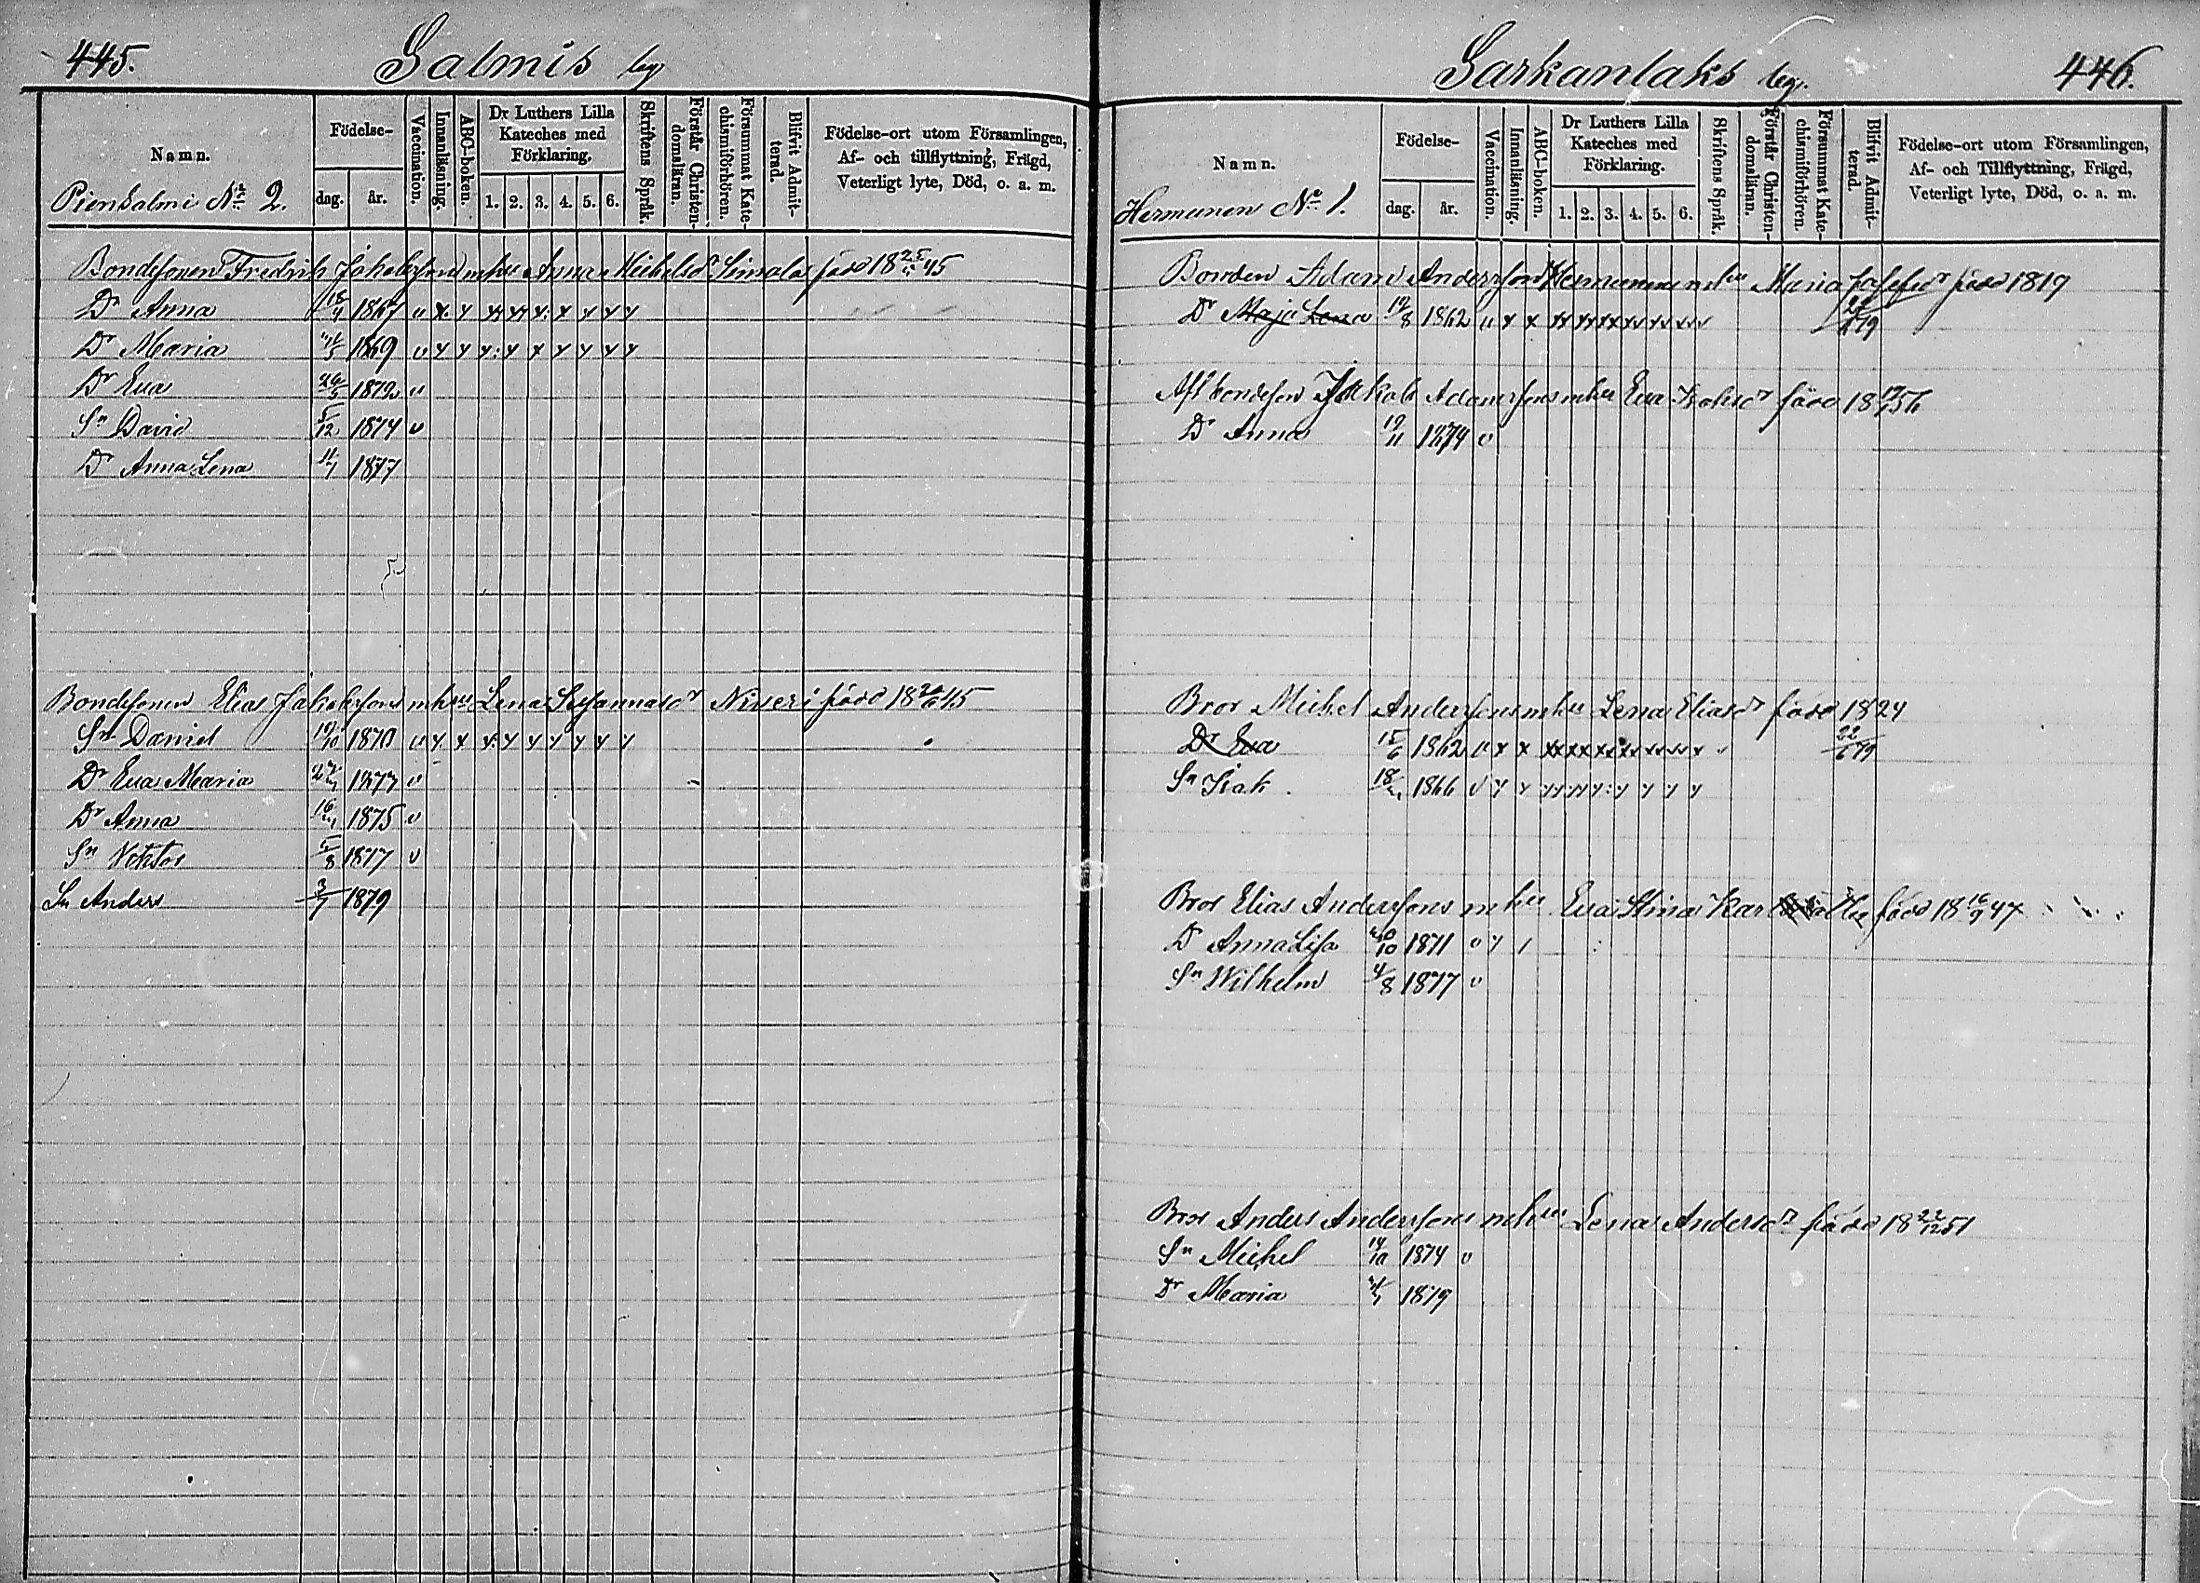 445.
Salmis by
Namn.
Födelse-
dag. år.
Vaccination.
Innanläsning.
ABC-boken.
Dr Luthers Lilla
Kateches med
Förklaring.
1. 2. 3. 4. 5. 6.
Skriftens Språk.
Förstår Christen-
domsläran.
Försummat Kate-
chismiförhören.
Blifvit Admit-
terad.
Födelse-ort utom Församlingen,
Af- och tillflyttning, Frägd,
Veterligt lyte, Död, o. a. m.
Piensalmi No 2.
Bondesonen Fredrik Jakobsson mhu Anna Michelsdr Simola född 18 25/11 45
Dr Anna 18/4 1867 v x y
Dr Maria 1869 v y y
Dr Eva 26/5 1872 v
Sn David 5/12 1874 v
Dr Anna Lena 11/1 1877
Bondesonen Elias Jakobsson mhu Lena född 18 45
Sn Daniel 19/10 1870 v y x
Dr Eva Maria 1877 v
Dr Anna 1875 v
Sn Viktor 5/8 1877 v
Sn Anders 3/7 1879
Sarkanlaks by.
446.
Namn.
Födelse-
dag. år.
Vaccination.
Innanläsning.
ABC-boken.
Dr Luthers Lilla
Kateches med
Förklaring.
1. 2. 3. 4. 5. 6.
Skriftens Språk.
Förstår Christen-
domslärn.
Försummat Kate-
chismiförhören.
Blifvit Admit-
terad.
Födelse-ort utom Församlingen,
Af- och Tillflyttning, Frägd,
Veterligt lyte, Död, o. a. m.
Hermunen No 1.
Bonden Adam Andersson Hermunen mhu Maria Josefsdr född 1819
Dr Maja Lena 19/8 1862 v x x 22/6 79
Aft bondeson Jakob Adamsson mhu Eva född 18 56
Dr Anna 19/11 1874 v
Bror Michel Andersson mhu Lena Eliasdr född 1824
Dr Eva 15/6 1862 v x x 22/6 79
Sn Isak 1866 v y y
Bror Elias Andersson mhu Eva Stina född 18 16/9 47
Dr Anna Lisa 20/10 1871 v y
Sn Wilhelm 4/8 1877 v
Bror Anders Andersson mhu Lena Andersdr född 18 22/12 51
Sn Michel 14/10 1874 v
Dr Maria 1879